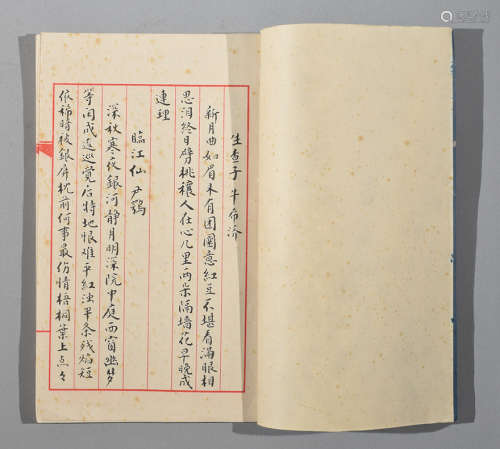 生查子 牛希济
新月曲如眉未有团圞意红豆不堪看满眼相
思泪终日劈桃穰人在心儿里两朵隔墙花早晚成
連理
臨江仙 尹鶚
深秋寒夜銀河静月明深院中庭西窗幽梦
等闲成逡巡觉后特地恨难平红烛半条残焰短
依稀暗被銀屏枕前何事最伤情梧桐葉上点々